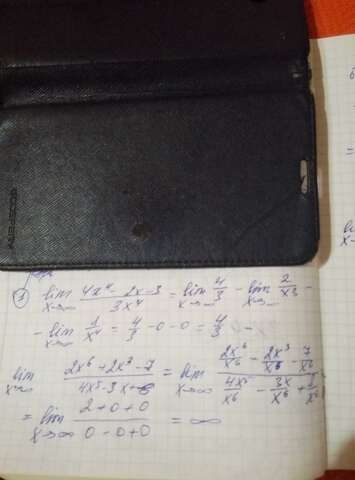 1) lim x→∞ (4x⁴ - 2x - 3)/(3x⁴) = lim x→∞ 4/3 - lim x→∞ 2/x3 -
- lim x→∞ 1/x⁴ = 4/3 - 0 - 0 = 4/3
lim x→∞ (2x⁶ + 2x³ - 7)/(4x⁵ - 3x + 8) = lim x→∞ (2x⁶/x⁶ - 2x³/x⁶ - 7/x⁶)/(4x⁵/x⁶ - 3x/x⁶ +
= lim x→∞ (2 + 0 + 0)/(0 - 0 + 0) = ∞